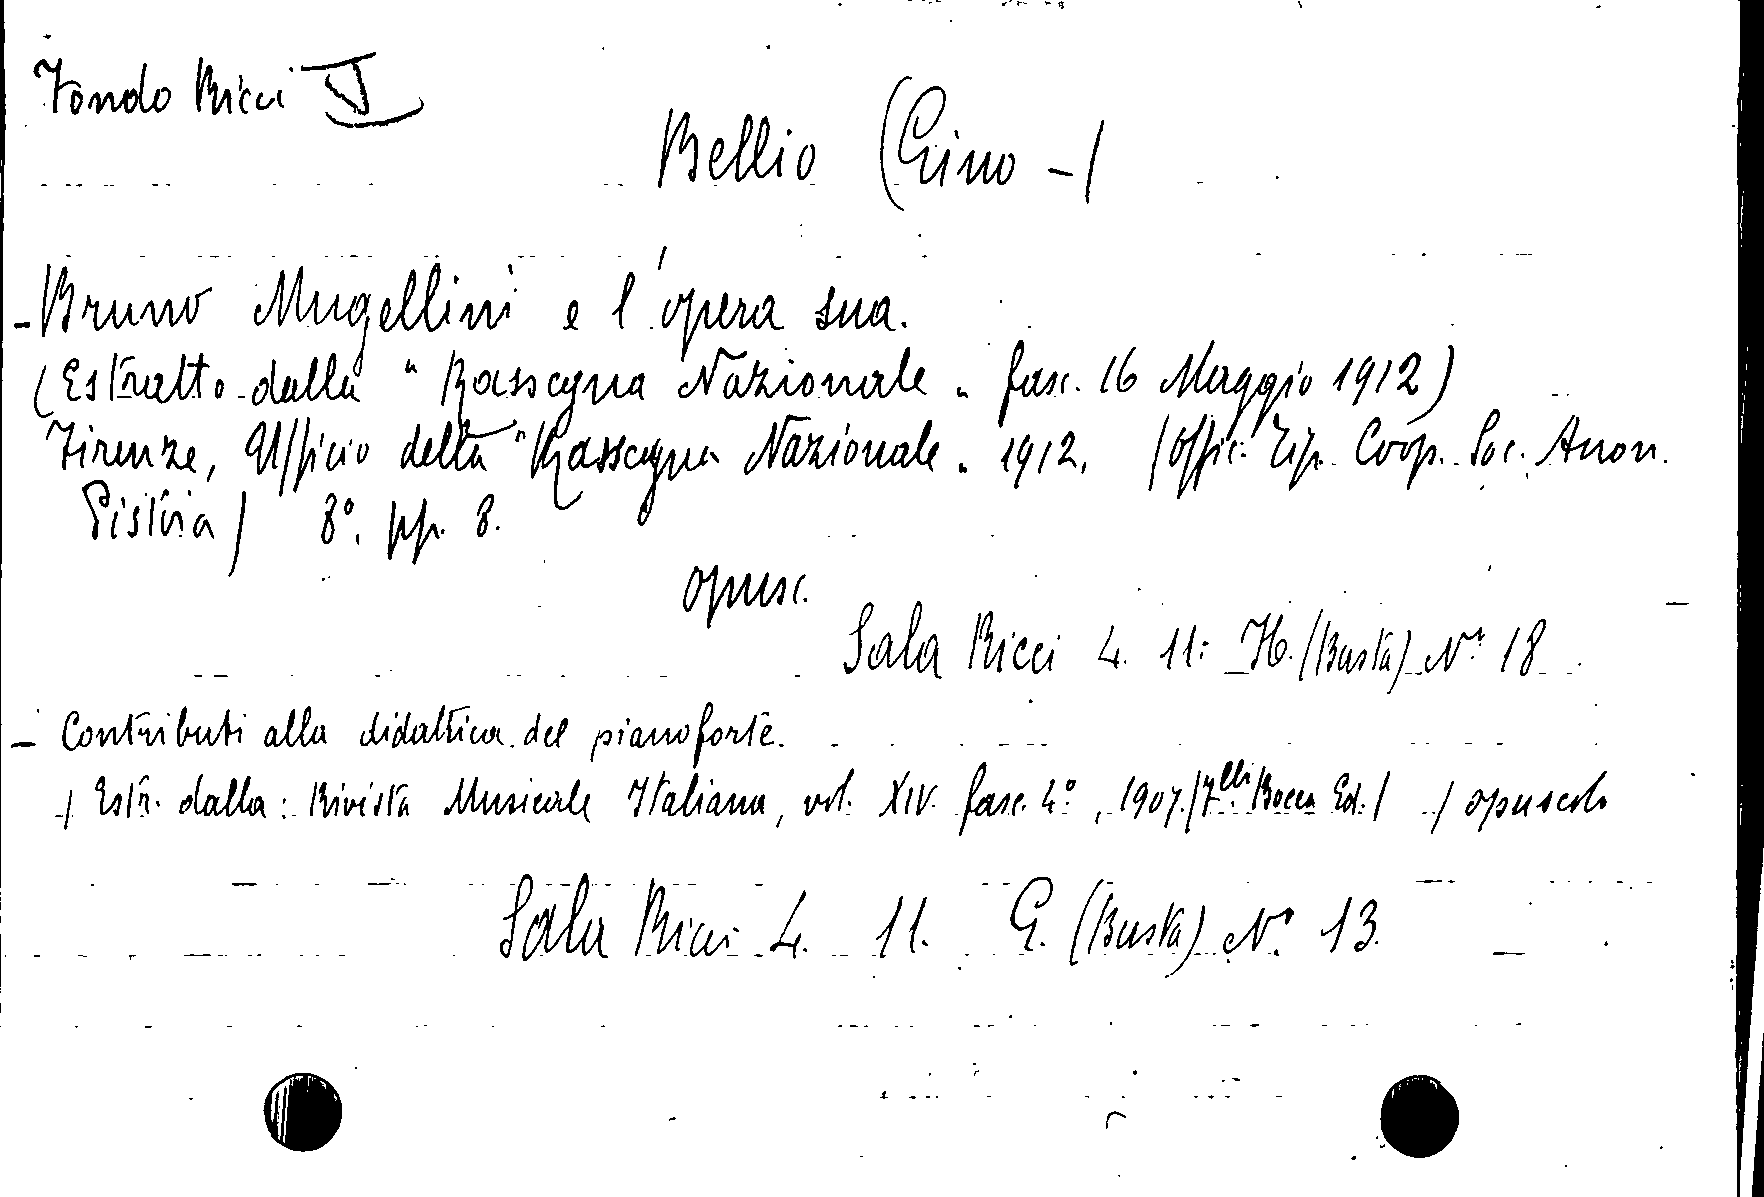 Fondo Ricci V
Bellio (Gino -)
- Bruno Mugellini e l'opera sua.
(Estratto dalla "Rassegna Nazionale„ fasc. 16 Maggio 1912)
Firenze, Ufficio della "Rassegna Nazionale„ 1912. (Offic. Tip. Coop. Soc. Anon.
Pistoia) 8°. pp. 8.
opusc.
Sala Ricci 4. 11: H. (Busta) N° 18
- Contributi alla didattica del pianoforte.
/ Estr. dalla: Rivista Musicale Italiana, vol. XIV. fasc. 4°, 1907. / Flli Bocca Ed. / / opuscolo
Sala Ricci 4. 11. G. (Busta) N° 13.